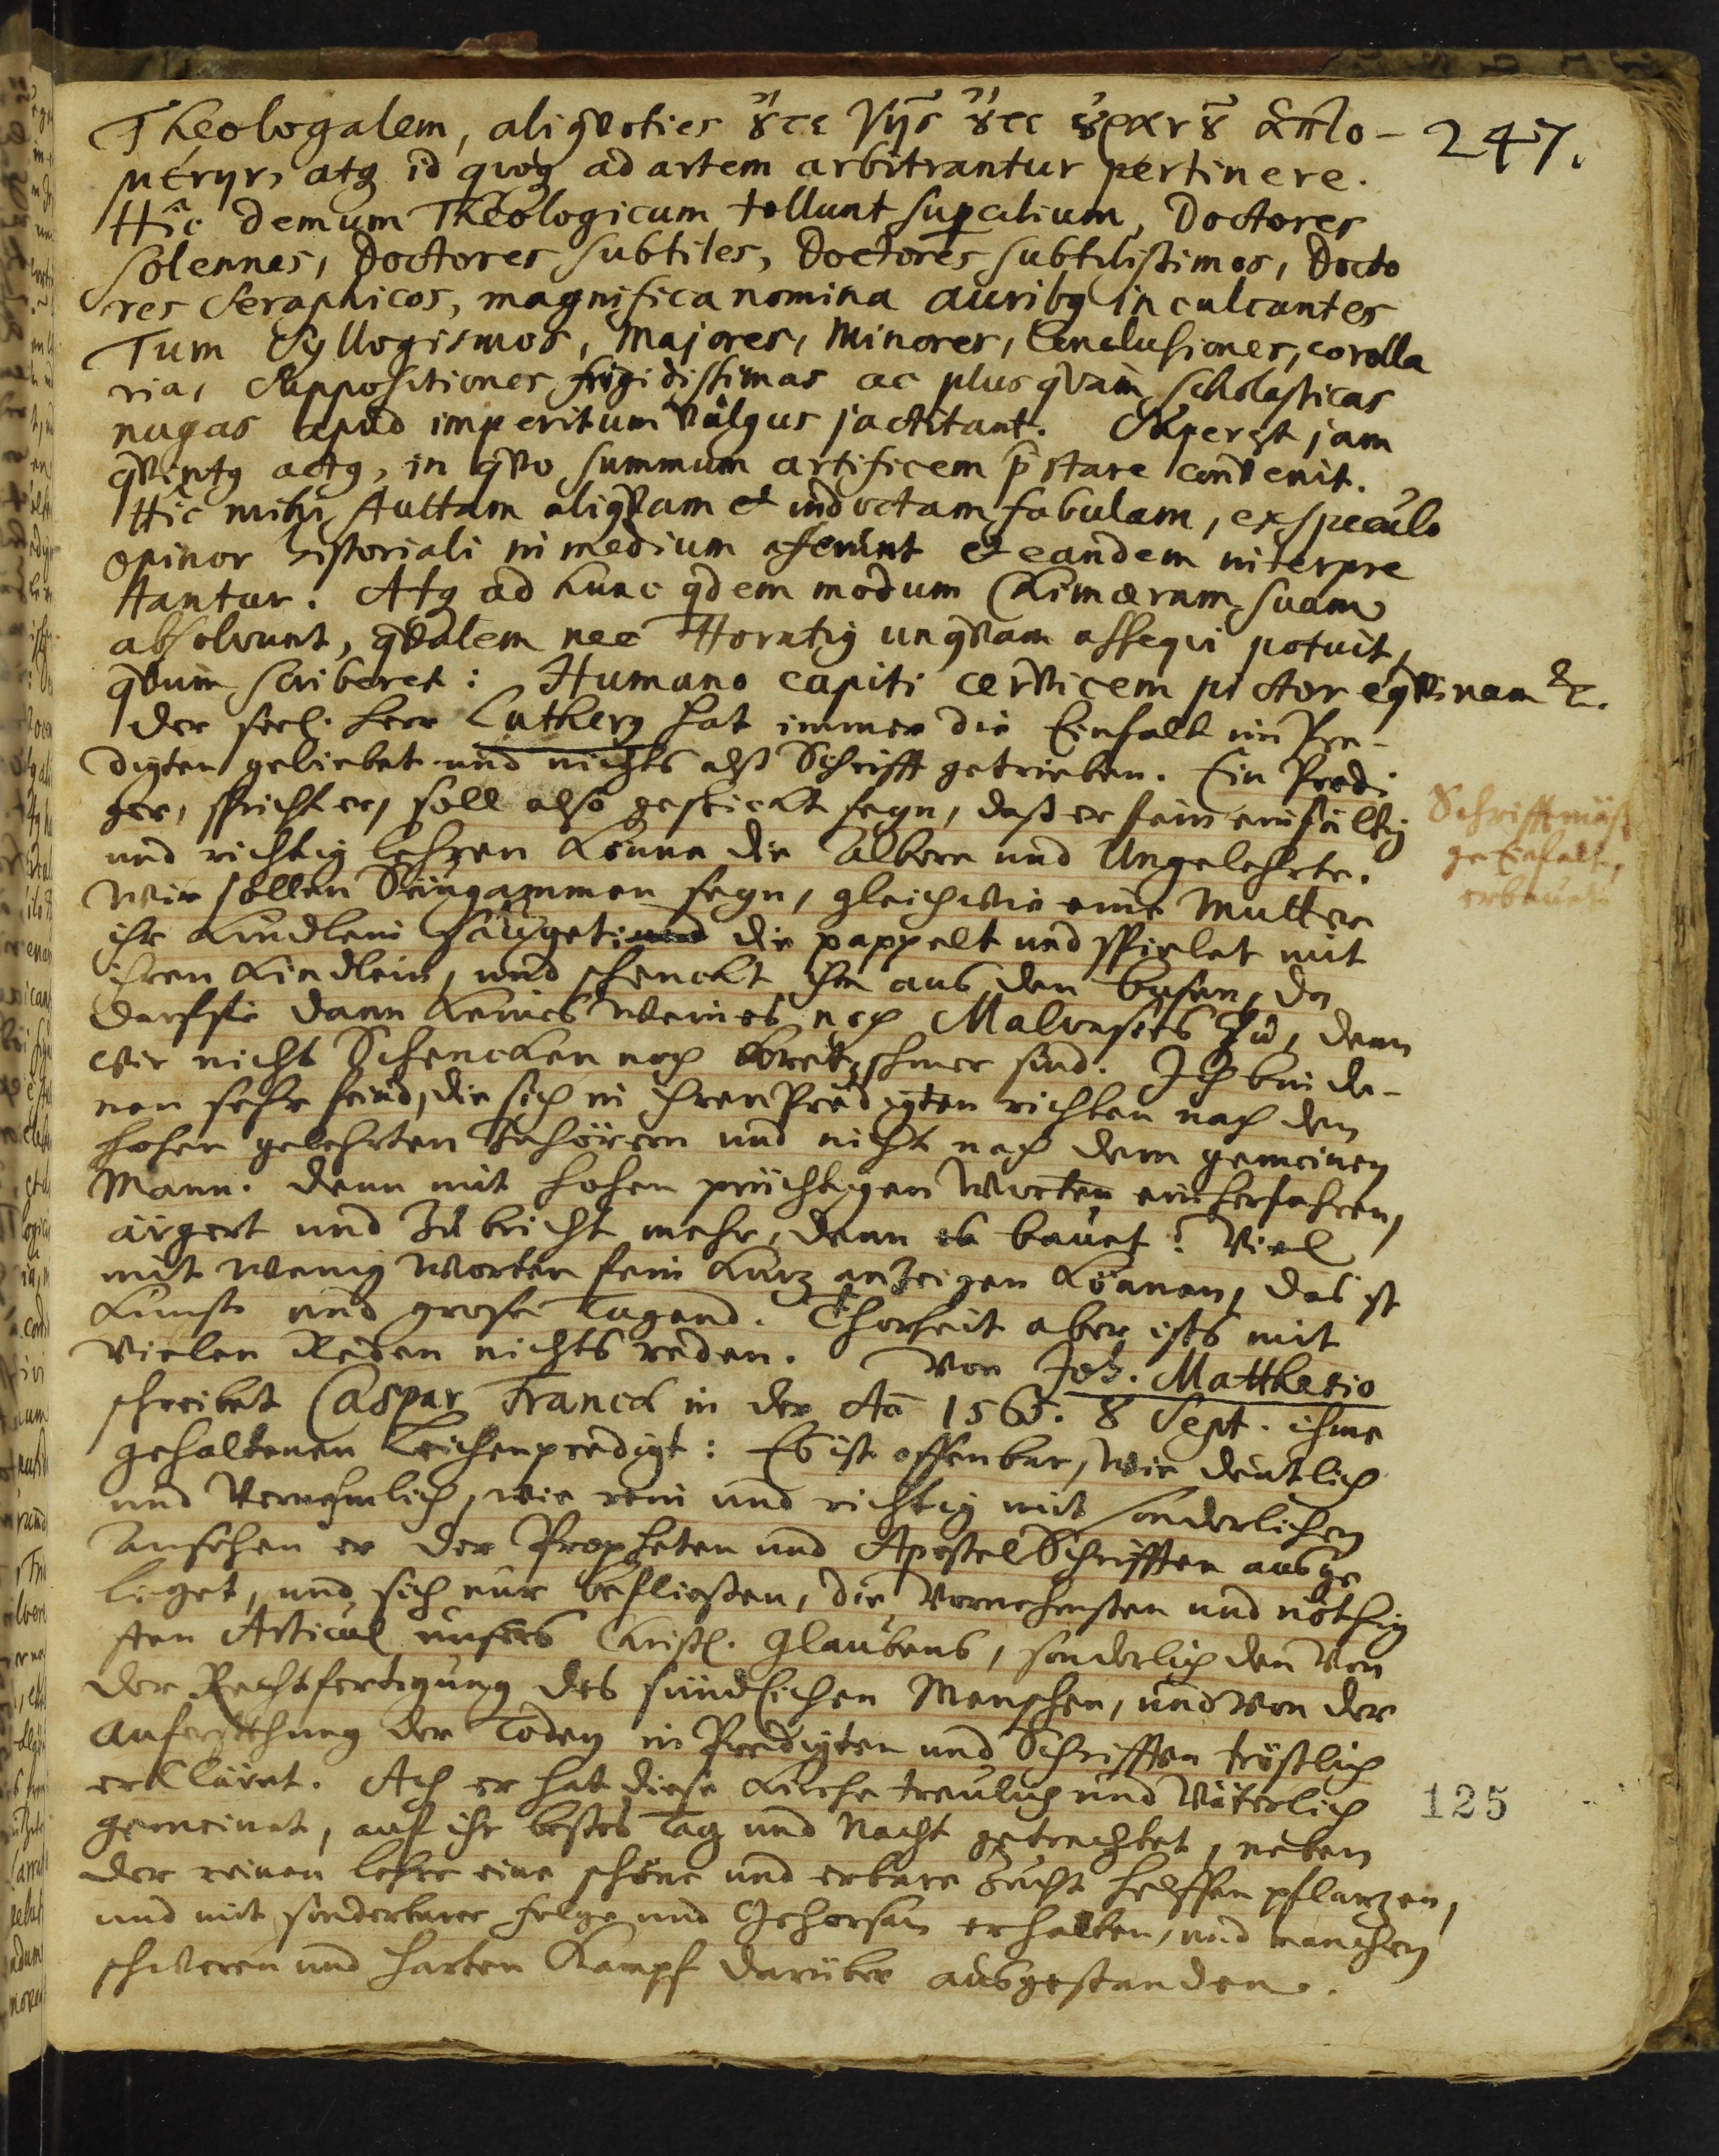 247.
Theologalem, aliqvoties ὄτε γῆς ὄτε ὀρανȣ͂ ἁπλο-
μένην, atq id qvoq ad artem arbitrantur pertinere.
Hîc demum Theologicum tollunt supcilium, Doctores
solennes, Doctores subtiles, Doctores subtilissimos, Docto
res Seraphicos, magnifica nomina auribq inculcantes
Tum Syllogismos, Majores, Minores, Conclusiones, corolla
ria, Suppositiones frigidissimas ac plus qvam Scholasticas
nugas apud imperitum vulgus jactitant. Superest jam
qvintq actq, in qvo summum artificem p̄stare convenit.
Hîc mihi stultam aliqvam et indoctam fabulam, ex speculo
opinor historiali in medium aferunt et eandem interpre
tantur. Atq ad hunc qdem modum Chimæram suam
absolvunt, qvalem nec Horatiq unqvam asseqvi potuit,
qvum scriberet: Humano capiti cervicem pictor eqvinam &c.
Der seel. Herr Lutherq hat immer die Einfalt im Pre-
digten geliebet und nichts alß Schrifft getrieben. Ein Predi
ger, spricht er, soll also geschickt seyn, daß er fein einfältig
und richtig lehren könne die Albern und Ungelehrte.
Wir sollen Säugammen seyn, gleichwie eine Mutter
ihr Kindlein säuget die pappelt und spielet mit
ihren Kindlein, und schenckt ihm aus den busen, da
darff sie dann keines Weines noch Malvasiers zu, denn
wir nicht Schencken noch Kretzschmer sind. Ich bin de-
nen sehr feind, die sich in ihren Predigten richten nach den
hohen gelehrten Zuhörern und nicht nach dem gemeinen
Mann. Denn mit hohen prächtigen Worten einherfahren,
ärgert und zubricht mehr, denn es bauet. Viel
mit wenig Worten fein kurz anzeigen können, das ist
Kunst und grose Tugend. Thorheit aber ists mit
vielen Reden nichts reden. Von Joh. Matthesio
schreibet Caspar Franck in der Aō 1565. 8 Sept. ihme
gehaltenen Leichenpredigt: Es ist offenbar, wie deutlich
und vernehmlich, wie rein und richtig mit sonderlichen
Ansehen er der Propheten und Apostel Schrifften ausge
leget, und sich nur befliesten, die vornehmsten und nöthig
sten Articul unsers Christl. Glaubens, sonderlich den von
der Rechtfertigung des sündlichen Menschen, und von der
Auferstehung der Toden in Predigten und Schrifften tröstlich
erkläret. Ach er hat diese Kirche treulich und väterlich
gemeinet, auf ihr bestes Tag und Nacht getrachtet, neben
der reinen lehre eine schöne und erbare Zucht helffen pflanzen,
und mit sonderbarer folge und Gehorsam erhalten, und manchen
schweren und harten Kampf darüber ausgestanden.
Schrifftmäß
ge Einfalt
erbauet
125